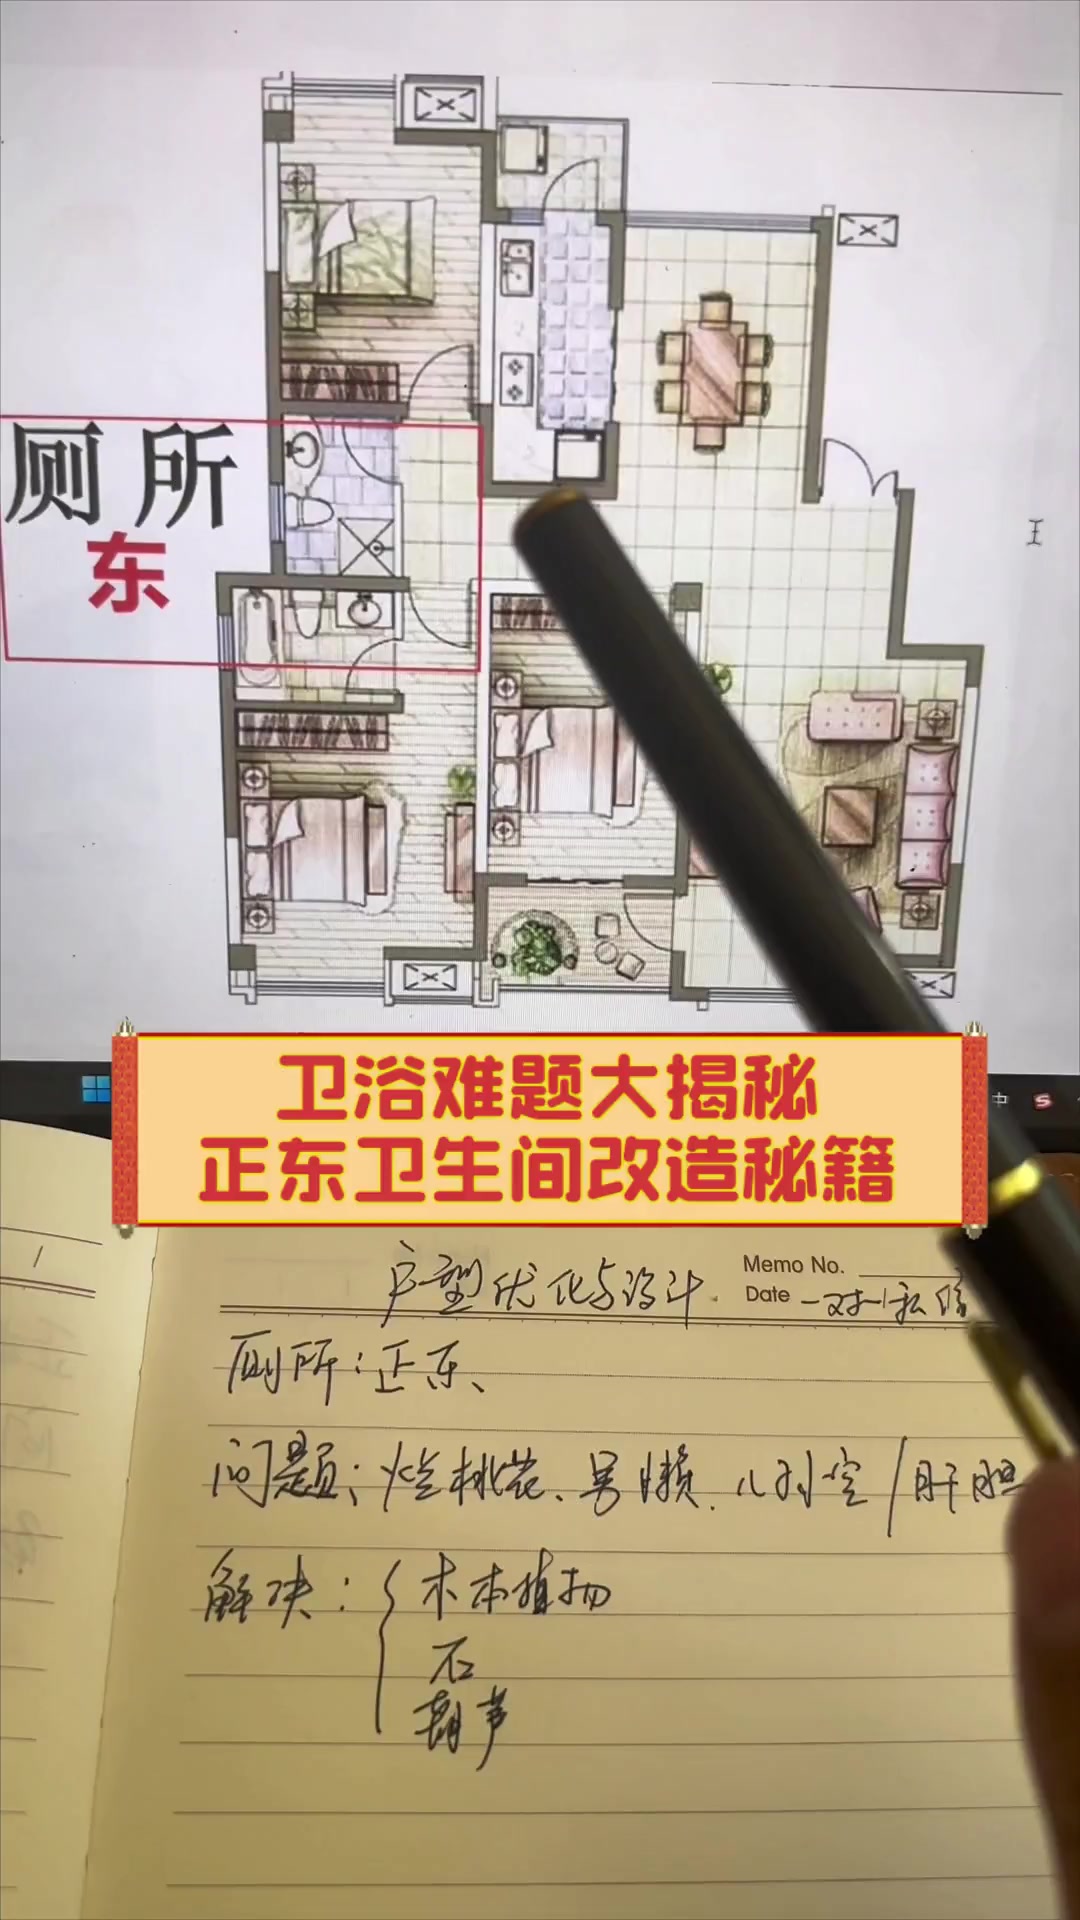 厕所
东
中
卫浴难题大揭秘
正东卫生间改造秘籍
户型优化与设计.
Memo No.
Date 一对一私信
厕所：正东、
问题：烂桃花、男懒.儿孙空/肝胆
解决：木本植物
石
葫芦